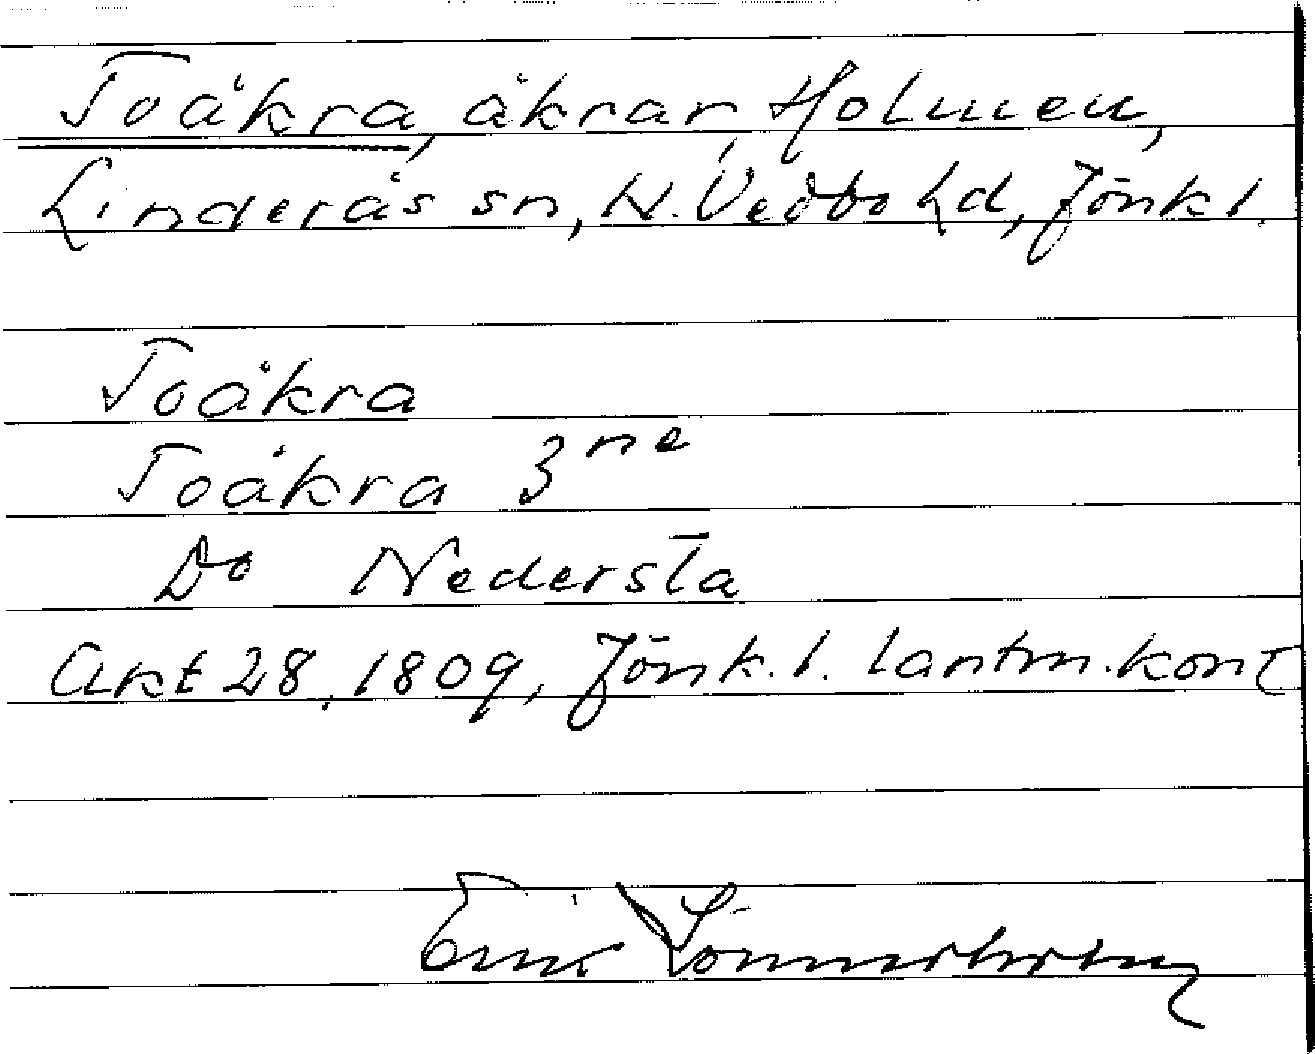 Toåkra, åkrar, Holmen,
Linderås sn, N. Vedbo hd, Jönk l.
Toåkra
Toåkra 3ne
Do Nedersta
Akt 28, 1809, Jönk. l. lantm. kont